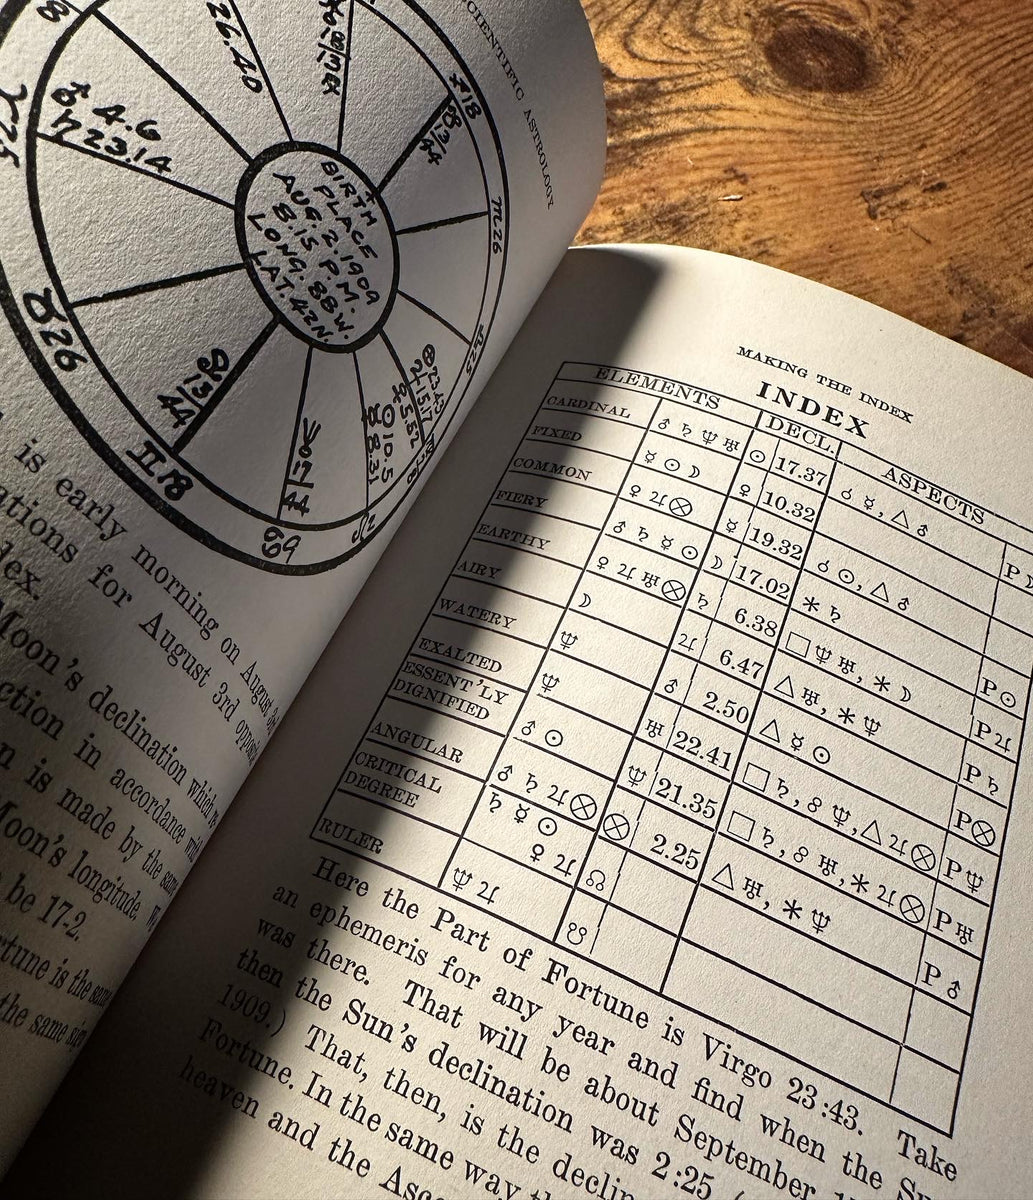 SCIENTIFIC ASTROLOGY
BIRTH
PLACE
AUG. 2, 1909
8.15 P.M.
LONG. 88W.
LAT. 42N.
26.40
♂ 4.6
♄ 23.14
♈25
♉26
♊.18
♐18
♏26
69
⊙10.5
is early morning on August
ations for August 3rd opposite
dex.
Moon's declination which
ction in accordance with
n is made by the same
Moon's longitude,
be 17-2.
rtune is the same
the same sign
MAKING THE INDEX
INDEX
ELEMENTS DECL. ASPECTS
CARDINAL ♂ ♄ ♆ ♅ ⊙ 17.37 ☌ ☿, △ ♂
FIXED ☿ ⊙ ☽ ♀ 10.32
COMMON ♀ ♃ ⊗ ☿ 19.32 ☌ ⊙, △ ♂
FIERY ♂ ♄ ☿ ⊙ ☽ 17.02 ⚹ ♄ P ⊙
EARTHY ♀ ♃ ♅ ⊗ ♄ 6.38 □ ♆ ♅, ⚹ ☽ P ♃
AIRY ☽ ♃ 6.47 △ ♅, ⚹ ♆ P ♄
WATERY ♆ ♂ 2.50 △ ☿ ⊙ P ⊗
EXALTED ♆ ♅ 22.41 □ ♄, ☍ ♆, △ ♃ ⊗ P ♆
ESSENT'LY
DIGNIFIED ♂ ⊙ ♆ 21.35 □ ♄, ☍ ♅, ⚹ ♃ ⊗ P ♅
ANGULAR ♂ ♄ ♃ ⊗ ⊗ 2.25 △ ♅, ⚹ ♆ P ♂
CRITICAL
DEGREE ♄ ☿ ⊙ ♀ ♃ ☊
RULER ♆ ♃ ☋
Here the Part of Fortune is Virgo 23:43. Take
an ephemeris for any year and find when the Su
was there. That will be about September 1
then the Sun's declination was 2:25
1909.) That, then, is the declin
Fortune. In the same way th
heaven and the Asc